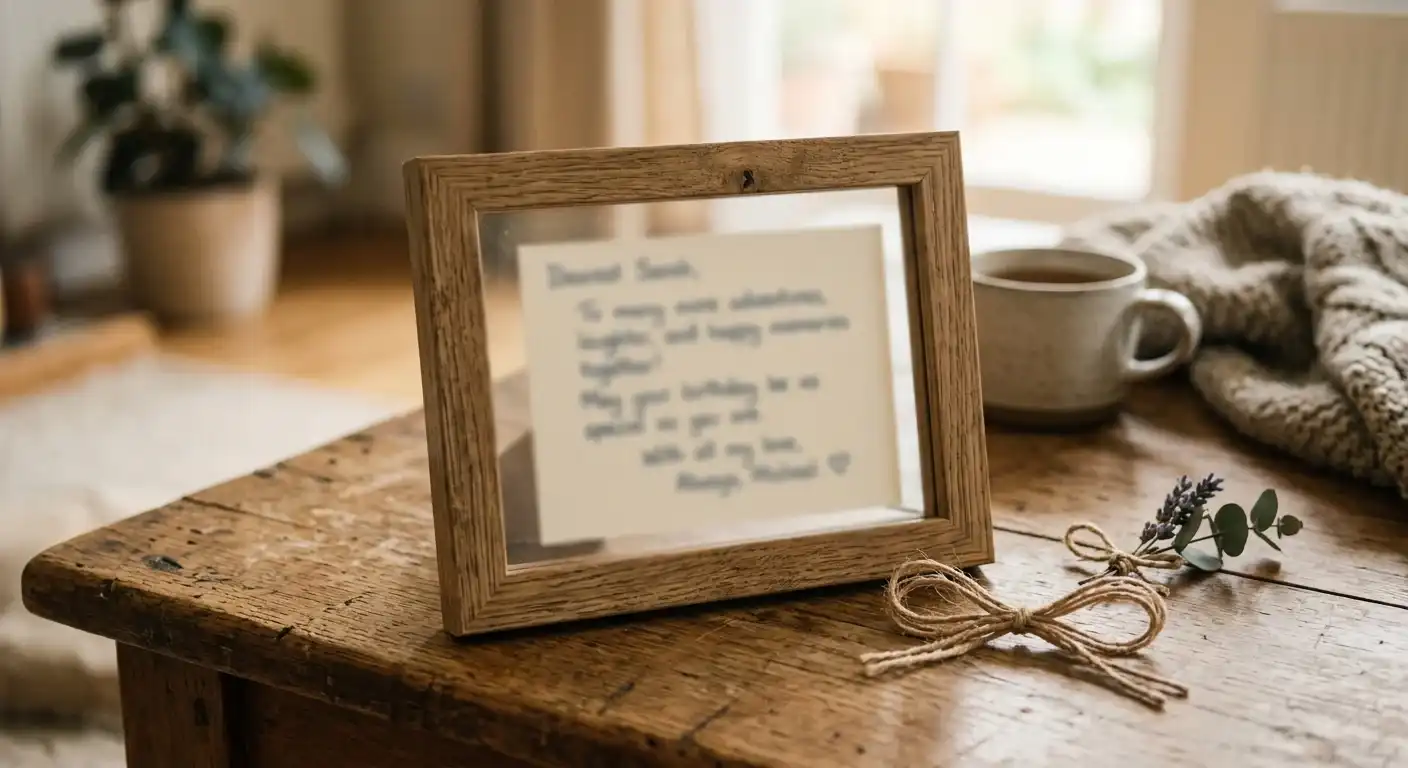 Dearest Sarah,
To many more adventures,
laughter, and happy memories
together!
May your birthday be as
special as you are.
With all my love,
Always,